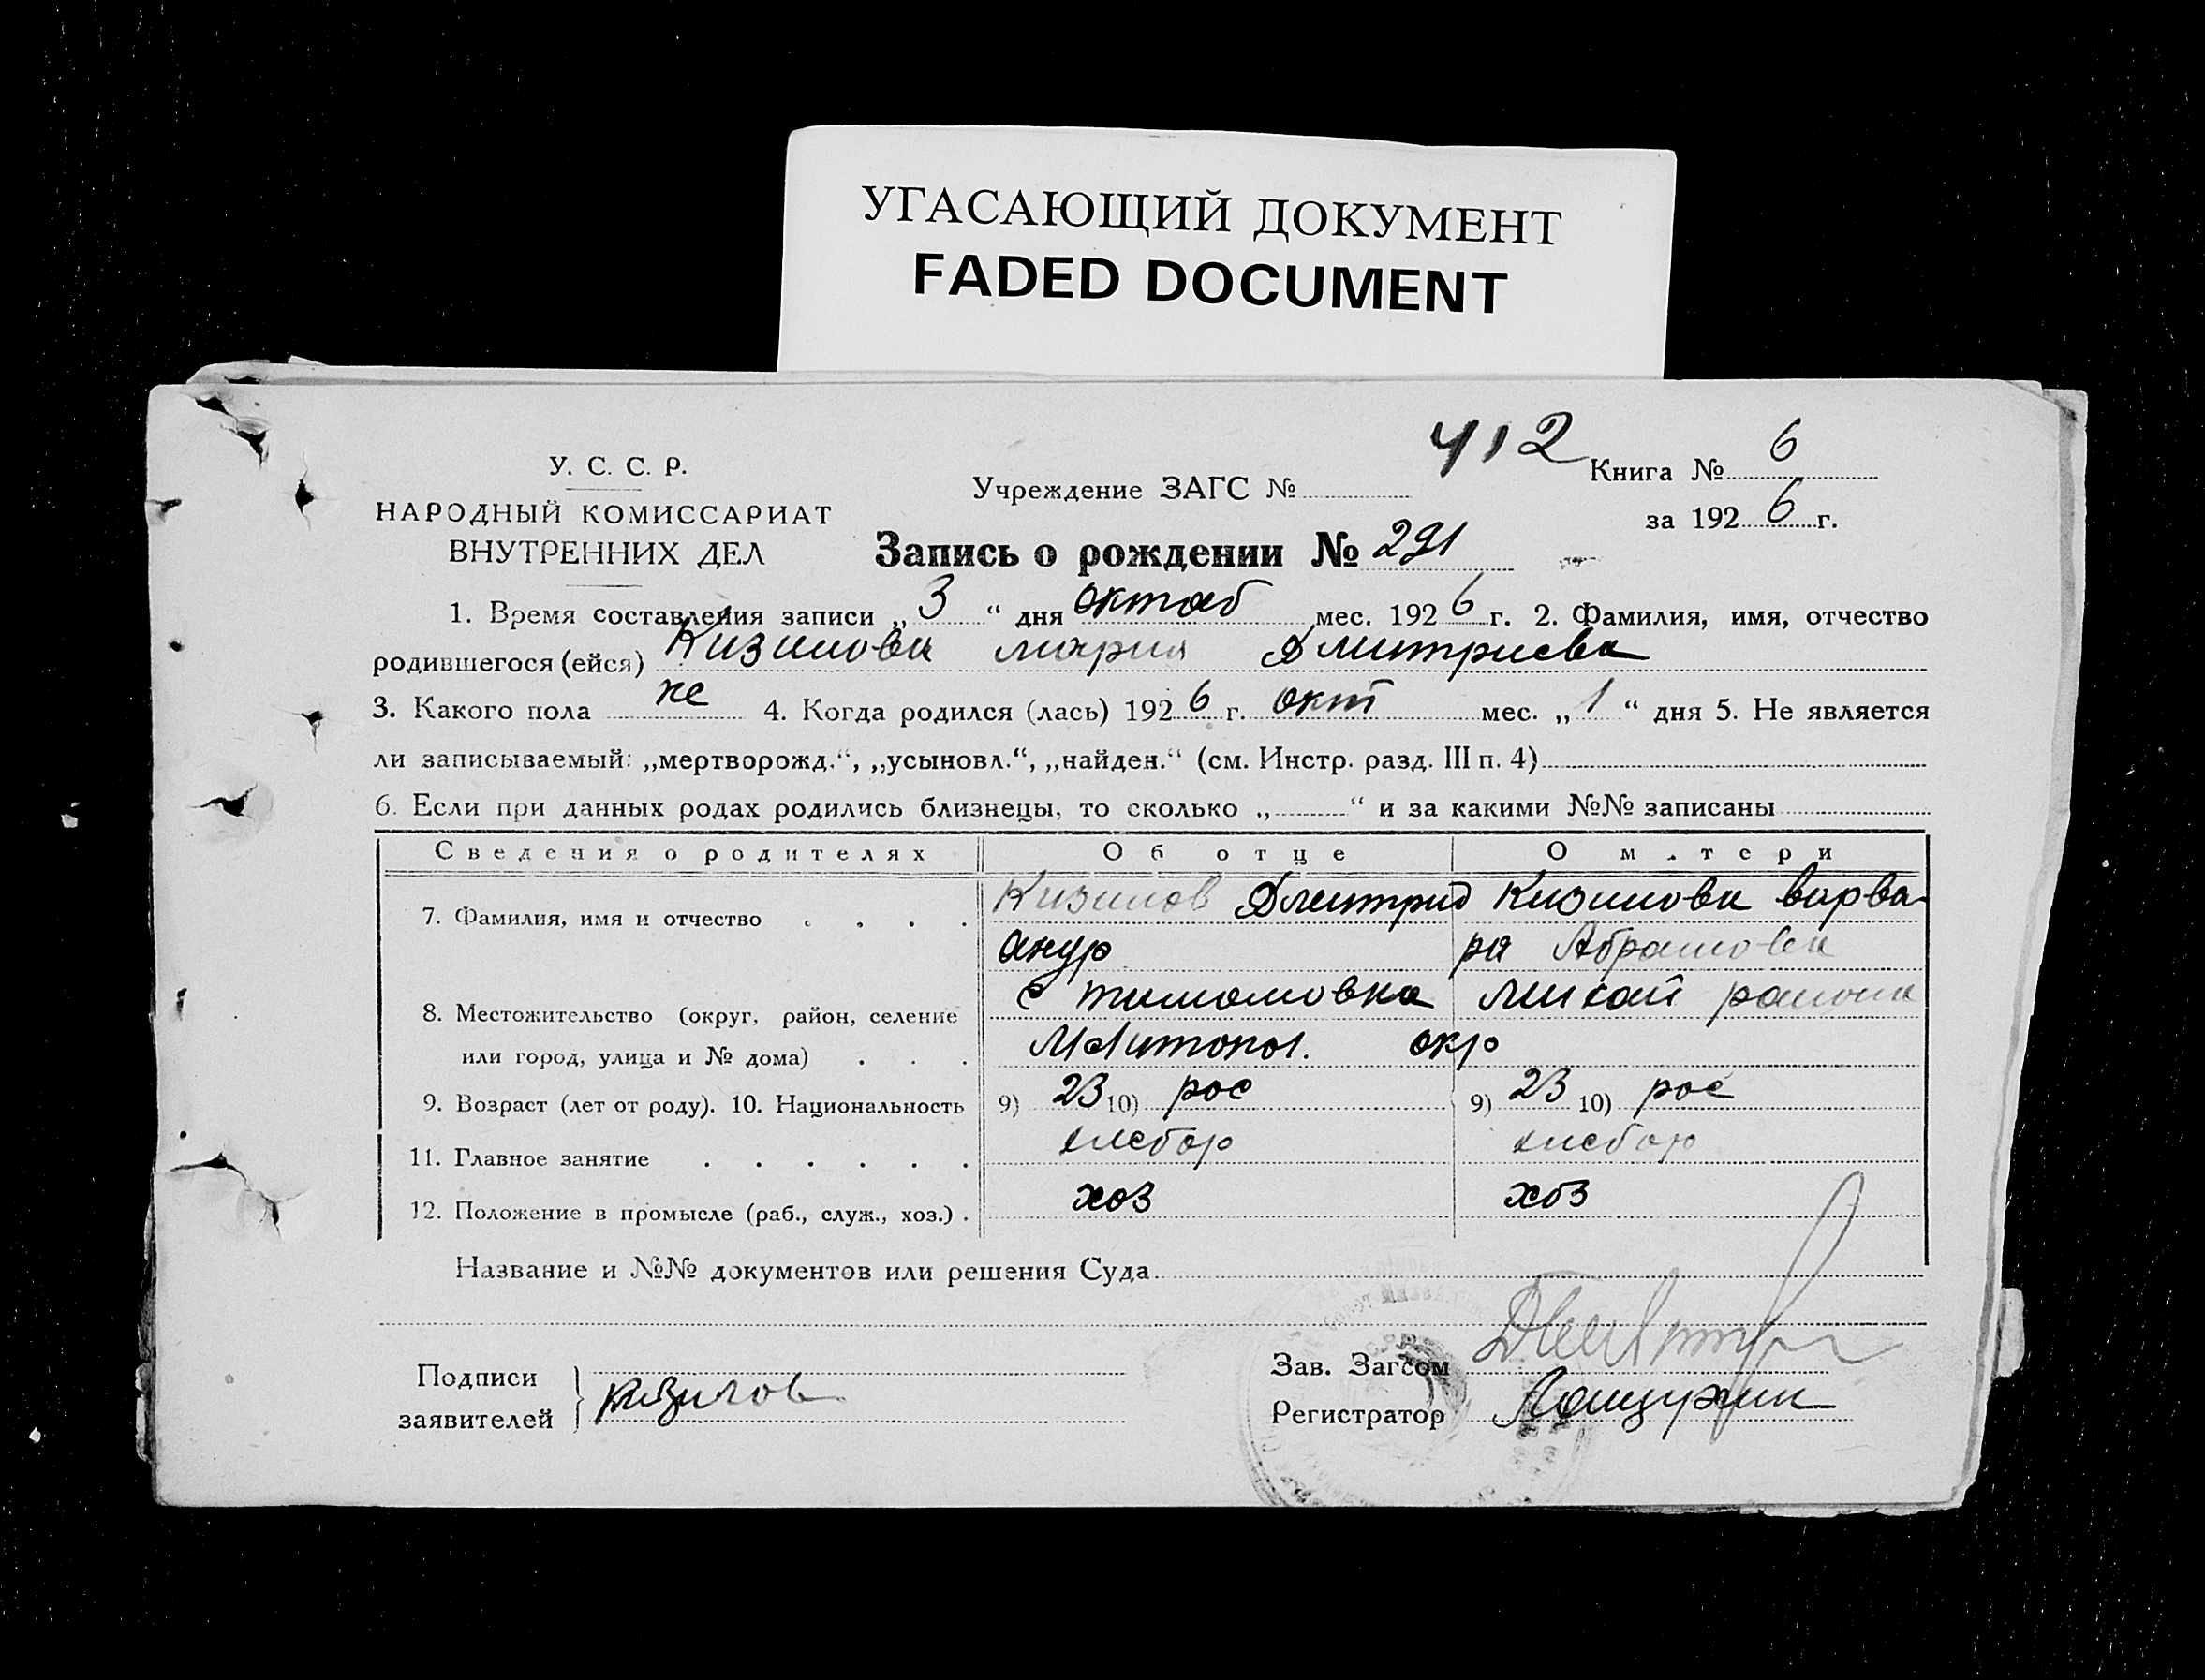 УГАСАЮЩИЙ ДОКУМЕНТ
FADED DOCUMENT
412
У. С. С. Р.
НАРОДНЫЙ КОМИССАРИАТ
ВНУТРЕННИХ ДЕЛ
Учреждение ЗАГС №
Книга № 6
за 1926 г.
Запись о рождении № 291
1. Время составления записи „3“ дня октяб мес. 1926 г. 2. Фамилия, имя, отчество
родившегося (ейся) Кизилова мария Дмитриевa
3. Какого пола же 4. Когда родился (лась) 1926 г. окт мес. „1“ дня 5. Не является
ли записываемый: „мертворожд.“, „усыновл.“, „найден.“ (см. Инстр. разд. III п. 4)
6. Если при данных родах родились близнецы, то сколько „ “ и за какими №№ записаны
Сведения о родителях Об отце О м.тери
7. Фамилия, имя и отчество Кизилов Дмитрид Кизилова варва-
андр ра Абрамовна
8. Местожительство (округ, район, селение с тимашовка михай района
или город, улица и № дома) Мелитопол. окр
9. Возраст (лет от роду). 10. Национальность 9) 23 10) рос 9) 23 10) рос
11. Главное занятие хлебор хлебор
12. Положение в промысле (раб., служ., хоз.) хоз хоз
Название и №№ документов или решения Суда
Подписи
заявителей } кизилов
Зав. Загсом
Регистратор